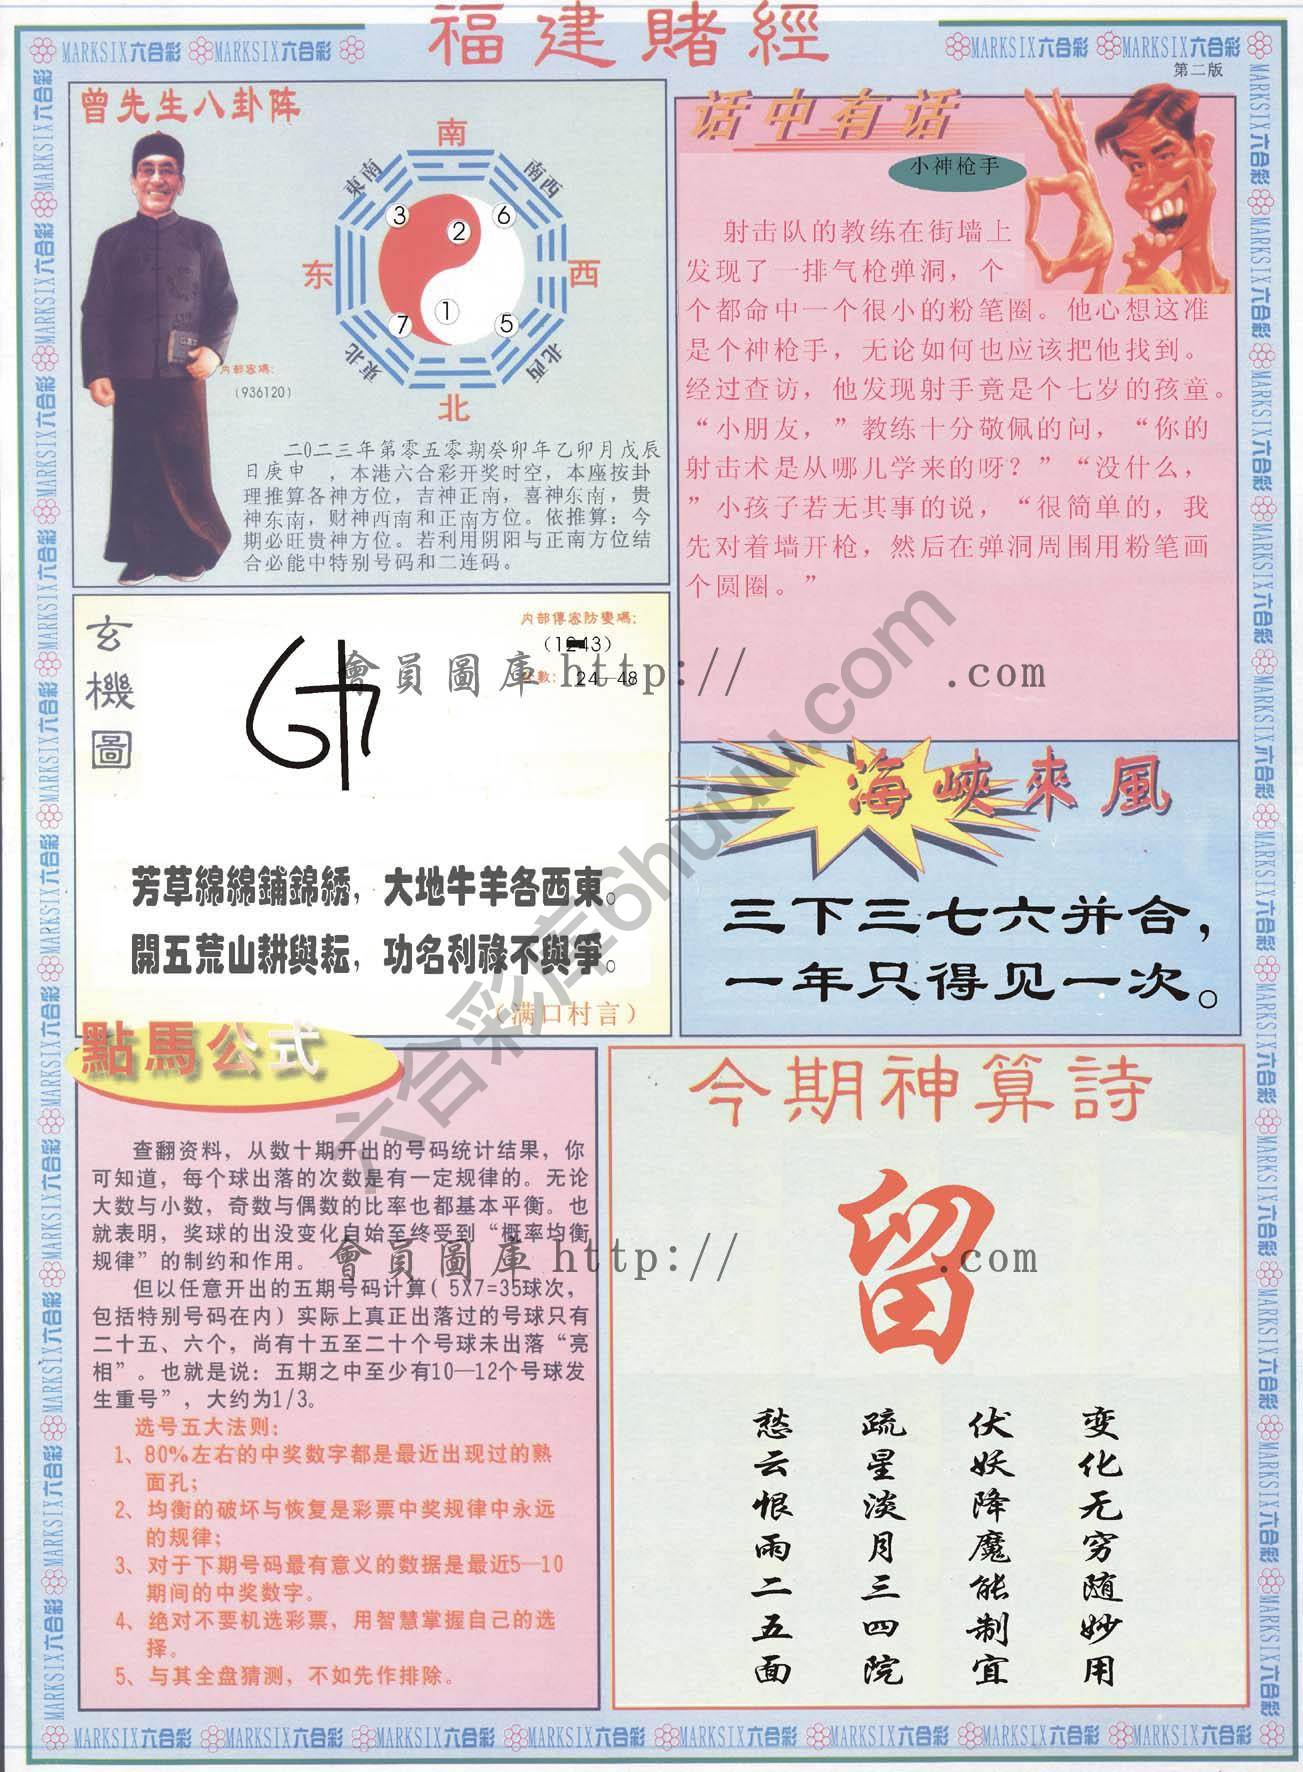 福建賭經
MARKSIX六合彩 MARKSIX六合彩
MARKSIX六合彩 MARKSIX六合彩
第二版
曾先生八卦阵
南
東南
南西
3
2
6
东
西
1
7
5
東北
北西
北
内部密碼：
(936120)
二0二三年第零五零期癸卯年乙卯月戊辰
日庚申 ，本港六合彩开奖时空，本座按卦
理推算各神方位，吉神正南，喜神东南，贵
神东南，财神西南和正南方位。依推算：今
期必旺贵神方位。若利用阴阳与正南方位结
合必能中特别号码和二连码。
话中有话
小神枪手
射击队的教练在街墙上
发现了一排气枪弹洞，个
个都命中一个很小的粉笔圈。他心想这准
是个神枪手，无论如何也应该把他找到。
经过查访，他发现射手竟是个七岁的孩童。
“小朋友，”教练十分敬佩的问，“你的
射击术是从哪儿学来的呀？”“没什么，
”小孩子若无其事的说，“很简单的，我
先对着墙开枪，然后在弹洞周围用粉笔画
个圆圈。”
玄機圖
内部傳密防變碼：
24—48
會員圖庫 http:// .com
芳草綿綿鋪錦綉，大地牛羊各西東。
開五荒山耕與耘，功名利祿不與爭。
（满口村言）
海峽來風
三下三七六并合，
一年只得见一次。
六合彩库6huuu.com
點馬公式
查翻资料，从数十期开出的号码统计结果，你
可知道，每个球出落的次数是有一定规律的。无论
大数与小数，奇数与偶数的比率也都基本平衡。也
就表明，奖球的出没变化自始至终受到“概率均衡
规律”的制约和作用。
但以任意开出的五期号码计算( 5X7=35球次，
包括特别号码在内）实际上真正出落过的号球只有
二十五、六个，尚有十五至二十个号球未出落“亮
相”。也就是说：五期之中至少有10—12个号球发
生重号”，大约为1/3。
选号五大法则：
1、80%左右的中奖数字都是最近出现过的熟
面孔；
2、均衡的破坏与恢复是彩票中奖规律中永远
的规律；
3、对于下期号码最有意义的数据是最近5—10
期间的中奖数字。
4、绝对不要机选彩票，用智慧掌握自己的选
择。
5、与其全盘猜测，不如先作排除。
會員圖庫 http:// .com
今期神算詩
留
变化无穷随妙用
伏妖降魔能制宜
疏星淡月三四院
愁云恨雨二五面
MARKSIX六合彩 MARKSIX六合彩 MARKSIX六合彩 MARKSIX六合彩 MARKSIX六合彩 MARKSIX六合彩 MARKSIX六合彩 MARKSIX六合彩